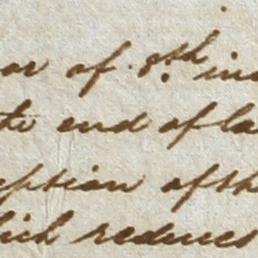 or of 8th in
the end of la
eption of th
hich reduces